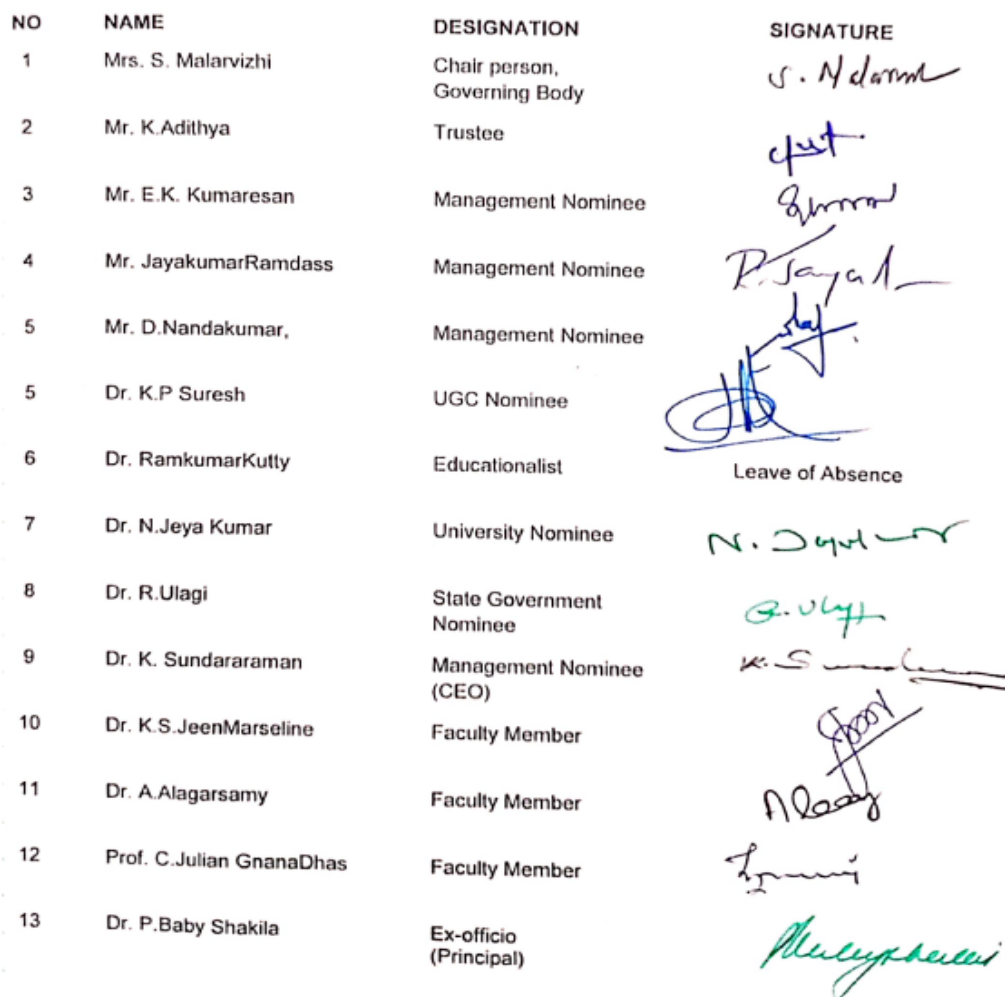 NO NAME DESIGNATION SIGNATURE
1 Mrs. S. Malarvizhi Chair person, S.
Governing Body
2 Mr. K.Adithya Trustee
3 Mr. E.K. Kumaresan Management Nominee
4 Mr. JayakumarRamdass Management Nominee
5 Mr. D.Nandakumar, Management Nominee
5 Dr. K.P Suresh UGC Nominee
6 Dr. RamkumarKutty Educationalist Leave of Absence
7 Dr. N.Jeya Kumar University Nominee N.
8 Dr. R.Ulagi State Government
Nominee
9 Dr. K. Sundararaman Management Nominee K.
(CEO)
10 Dr. K.S.JeenMarseline Faculty Member
11 Dr. A.Alagarsamy Faculty Member
12 Prof. C.Julian GnanaDhas Faculty Member
13 Dr. P.Baby Shakila Ex-officio
(Principal)